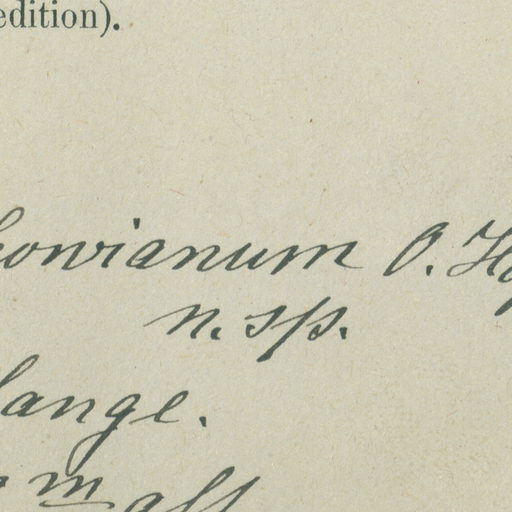 edition).
kowianum O. Ho
n. sp.
lange.
m alt